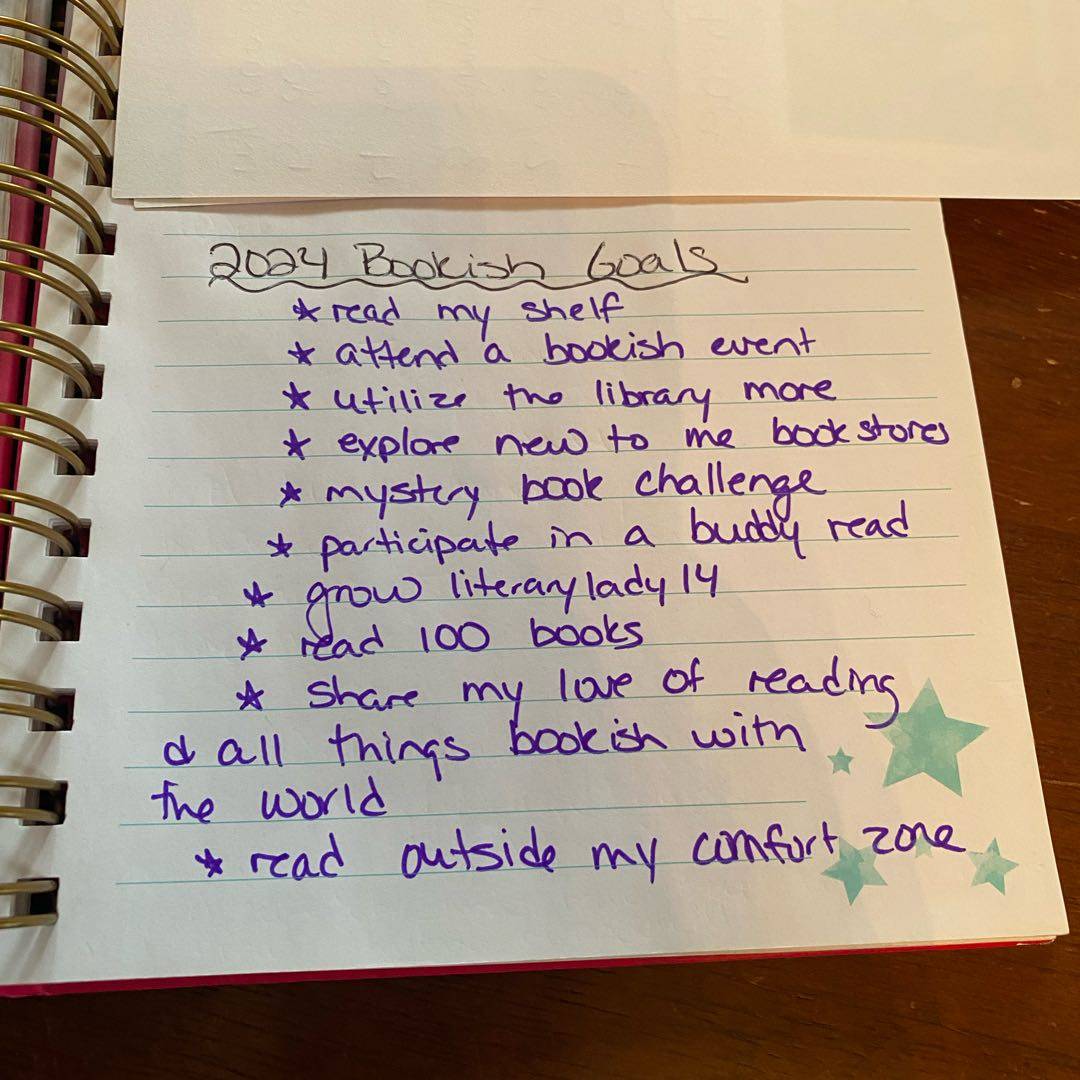 2024 Bookish Goals
* read my shelf
* attend a bookish event
* utilize the library more
* explore new to me book stores
* mystery book challenge
* participate in a buddy read
* grow literarylady14
* read 100 books
* share my love of reading
& all things bookish with
the world
* read outside my comfort zone